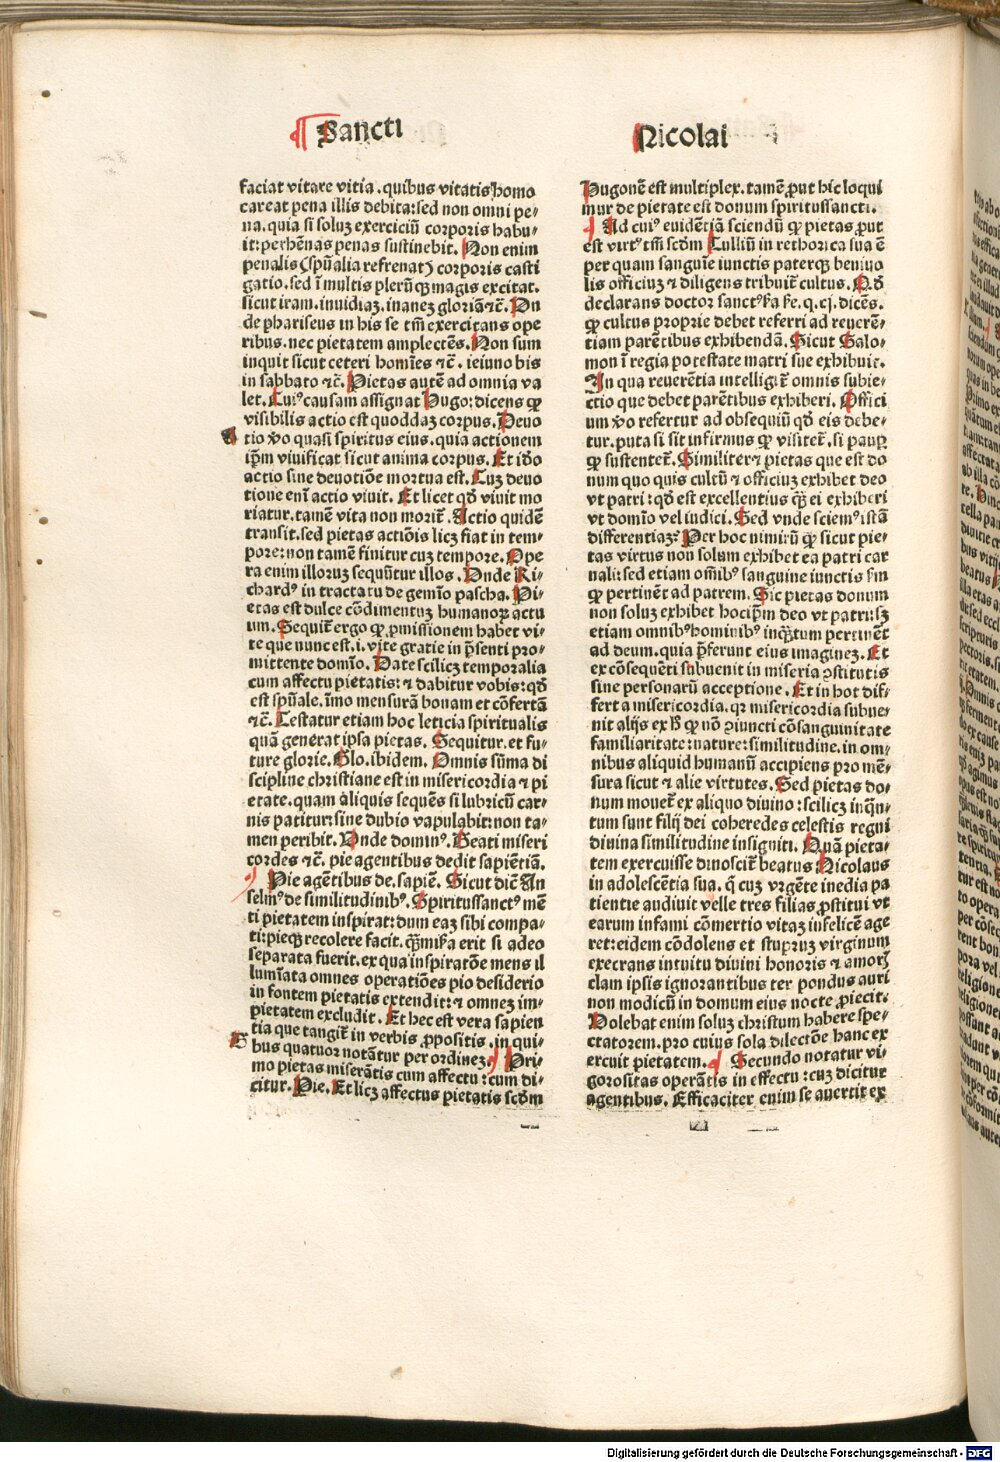 Sancti
Nicolai
faciat vitare vitia . quibus vitatis homo
careat pena illis debita: sed non omni pe⸗
na. quia si soluʒ exerciciū corporis habu⸗
it: perhēnas penas sustinebit. Non enim
penalis (spūalia refrenat) corporis casti
gatio. sed ī multis plerūqꝫ magis excitat.
sicut iram. inuidiaʒ. inaneʒ gloriā ⁊c̄. Vn
de phariseus in his se tm̄ exercitans ope
ribus. nec pietatem amplectēs. Non sum
inquit sicut ceteri homīes ⁊c̄ . ieiuno bis
in sabbato ⁊c̄. Pietas autē ad omnia va
let. Cuiꝰ causam assignat Hugo: dicens ꝙ
visibilis actio est quoddaʒ corpus. Deuo
tio v̄o quasi spiritus eius. quia actionem
ip̄m viuificat sicut anima corpus. Et id̄o
actio sine deuotiōe mortua est. Cuʒ deuo
tione enī actio viuit. Et licet qd̄ viuit mo
riatur. tamē vita non morit̄. Actio quidē
transit. sed pietas actiōis licʒ fiat in tem⸗
pore: non tamē finitur cuʒ tempore. Ope
ra enim illoruʒ sequūtur illos. Vnde Ri⸗
chardꝰ in tractatu de gemīo pascha. Pi⸗
etas est dulce cōdimentuʒ humanoꝝ actu
um. Sequit̄ ergo ꝙ ꝓmissionem habet vi⸗
te que nunc est. i. vite gratie in p̄senti pro⸗
mittente domīo. Date scilicʒ temporalia
cum affectu pietatis: ⁊ dabitur vobis: qd̄
est spūale. īmo mensurā bonam et cōfertā
⁊c̄. Testatur etiam hoc leticia spiritualis
quā generat ipsa pietas. Sequitur. et fu⸗
ture glorie. Glo. ibidem. Omnis sūma di
scipline christiane est in misericordia ⁊ pi
etate. quam aliquis sequēs si lubricū car⸗
nis patitur: sine dubio vapulabit: non ta⸗
men peribit. Vnde dominꝰ. Beati miseri
cordes ⁊c̄. pie agentibus dedit sapiētiā.
Pie agētibus de. sapiē. Sicut dic̄ An
selmꝰ de similitudinibꝰ. Spiritussanctꝰ mē
ti pietatem inspirat: dum eaʒ sibi compa⸗
ti: pieqꝫ recolere facit. qꝫ̄ mīa erit si adeo
separata fuerit. ex qua īspiratōe mens il
lumīata omnes operatiōes pio desiderio
in fontem pietatis extendit: ⁊ omneʒ im⸗
pietatem excludit. Et hec est vera sapien
tia que tangit̄ in verbis ꝓpositis. in qui⸗
bus quatuor notātur per ordineʒ. Pri⸗
mo pietas miserātis cum affectu: cum di⸗
citur. Pie. Et licʒ affectus pietatis scd̄m
Hugonē est multiplex. tamē ꝓut hic loqui
mur de pietate est donum spiritussancti.
Ad cuiꝰ euidētiā sciendū ꝙ pietas ꝓut
est virtꝰ est scd̄m Tulliū in rethorica sua ē
per quam sanguīe iunctis paterqꝫ beniuo
lis officiuʒ ⁊ diligens tribuit̄ cultus. Qd̄
declarans doctor sanctꝰ s̄a s̄e. q. cj. dicēs.
ꝙ cultus proprie debet referri ad reuerē⸗
tiam parētibus exhibendā. Sicut Salo⸗
mon ī regia potestate matri sue exhibuit.
In qua reuerētia intelligit̄ omnis subie⸗
ctio que debet parētibus exhiberi. Offici
um v̄o refertur ad obsequiū qd̄ eis debe⸗
tur. puta si sit infirmus ꝙ visitet̄. si pauꝑ
ꝙ sustentet̄. Similiter ⁊ pietas que est do
num quo quis cultū ⁊ officiuʒ exhibet deo
vt patri: qd̄ est excellentius qꝫ̄ ei exhiberi
vt domīo vel iudici. Sed vnde sciemꝰ istā
differentiaʒ? Per hoc nimirū ꝙ sicut pie⸗
tas virtus non solum exhibet ea patri car
nali: sed etiam oīnibꝰ sanguine iunctis s̄m
ꝙ pertinēt ad patrem. Sic pietas donum
non soluʒ exhibet hocip̄m deo vt patri: sʒ
etiam omnibꝰ hominibꝰ inqꝫ̄tum pertinēt
ad deum. quia p̄ferunt eius imagineʒ. Et
ex cōsequēti subuenit in miseria ꝯstitutis
sine personarū acceptione. Et in hoc dif⸗
fert a misericordia. qꝛ misericordia subue⸗
nit alijs ex h̄ ꝙ nō ꝯiuncti cōsanguinitate
familiaritate: nature: similitudine. in om⸗
nibus aliquid humanū accipiens pro mē⸗
sura sicut ⁊ alie virtutes. Sed pietas do⸗
num mouet̄ ex aliquo diuino: scilicʒ inqꝫ̄⸗
tum sunt filij dei coheredes celestis regni
diuina similitudine insigniti. Quā pieta⸗
tem exercuisse dinoscit̄ beatus Nicolaus
in adolescētia sua. q̄ cuʒ vrgēte inedia pa
tientie audiuit velle tres filias ꝓstitui vt
earum infami cōmertio vitaʒ infelicē age
ret: eidem cōdolens et stupruʒ virginum
execrans intuitu diuini honoris ⁊ amorʒ
clam ipsis ignorantibus ter pondus auri
non modicū in domum eius nocte ꝓiecit.
Volebat enim soluʒ christum habere spe⸗
ctatorem. pro cuius sola dilectōe hanc ex
ercuit pietatem. Secundo notatur vi⸗
gorositas operātis in effectu: cuʒ dicitur
agentibus. Efficaciter enim se auertit ex
Digitalisierung gefördert durch die Deutsche Forschungsgemeinschaft - DFG